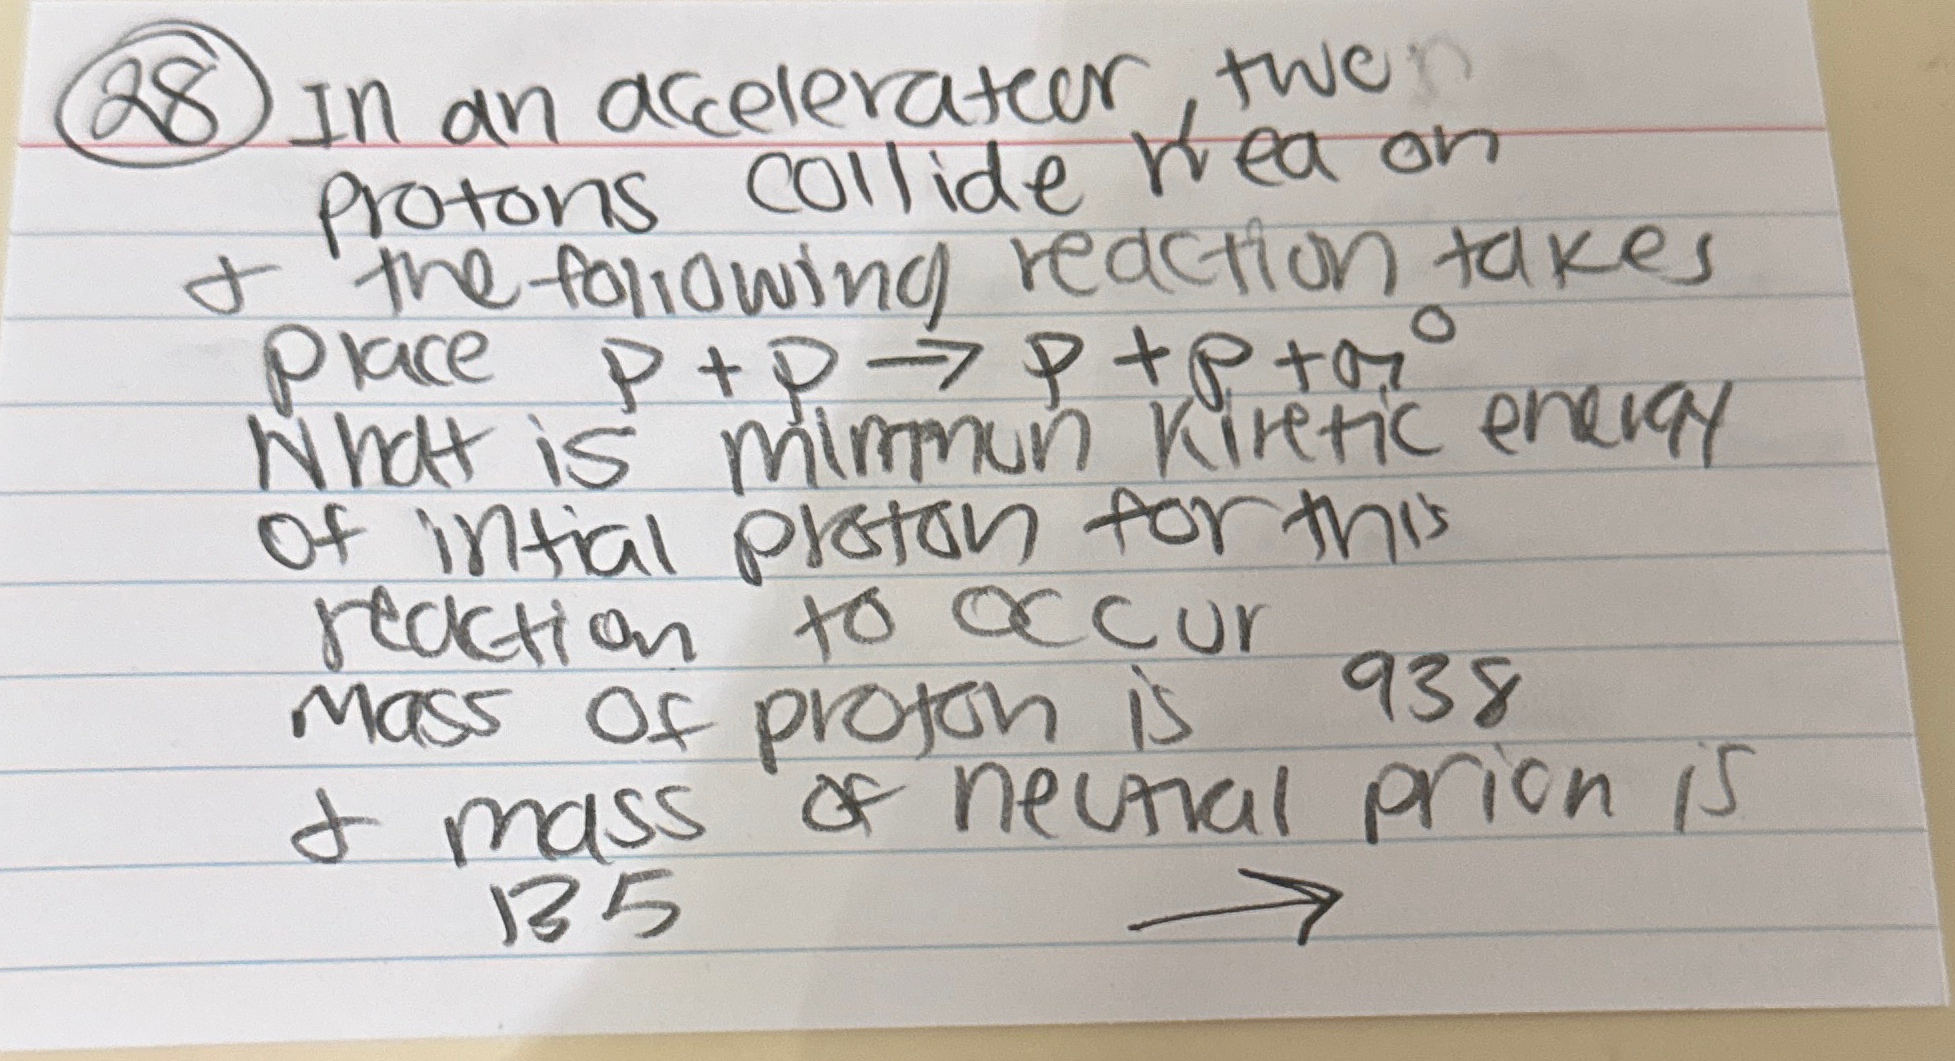 28 In an accelerateer, two
protons collide Hea on
& the following reaction takes
place p + p → p + p + π°
What is mimmun kinetic energy
of intial proton for this
reaction to occur
Mass of proton is 938
& mass of neutral prion is
135 →